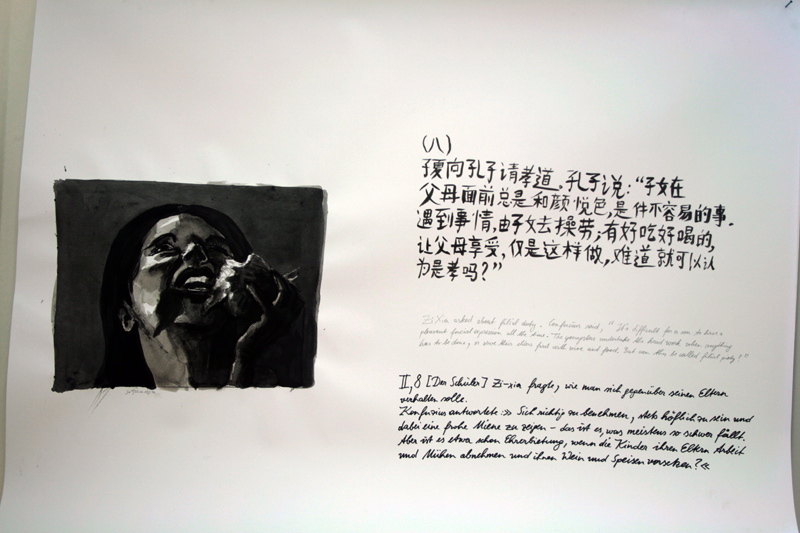 (八)
子夏向孔子请孝道,孔子说:“子女在
父母面前总是和颜悦色,是件不容易的事.
遇到事情,由子女去操劳;有好吃好喝的,
让父母享受,仅是这样做,难道就可以认
为是孝吗?”
Zi Xia asked about filial duty. Confucius said, "It's difficult for a son to have a
pleasant facial expression all the time. The youngsters undertake the hard work when anything
has to be done, or serve their elders first with wine and food. But can this be called filial piety?"
II, 8 [Der Schüler] Zi-xia fragte, wie man sich gegenüber seinen Eltern
verhalten solle.
Konfuzius antwortete: » Sich richtig zu benehmen, stets höflich zu sein und
dabei eine frohe Miene zu zeigen – das ist es, was meistens so schwer fällt.
Aber ist es etwa schon Ehrerbietung, wenn die Kinder ihren Eltern Arbeit
und Mühen abnehmen und ihnen Wein und Speisen vorsetzen? «